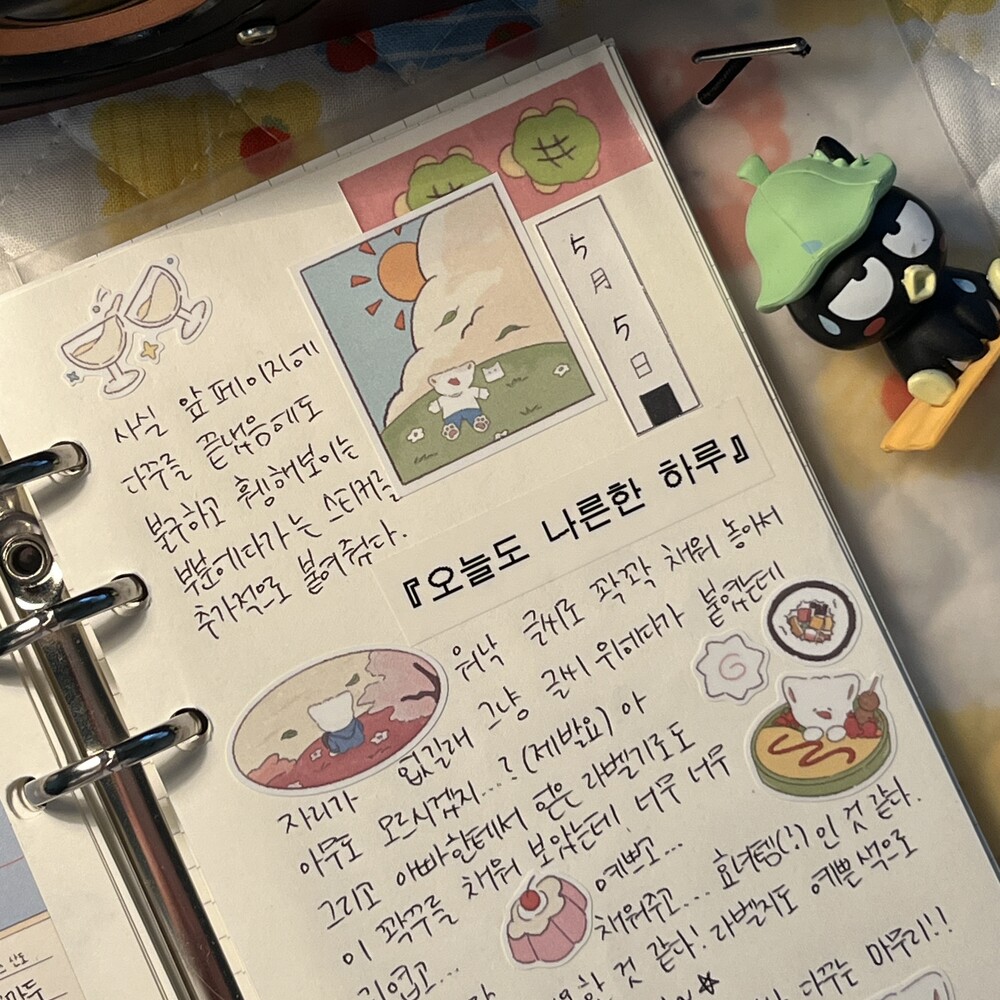 5
月
5
日
사실 앞 페이지에
다꾸를 끝냈음에도
불구하고 휑해보이는
부분에다가는 스티커를
추가적으로 붙여줬다.
『오늘도 나른한 하루』
워낙 글씨로 꽉꽉 채워 놓아서
그냥 글씨 위에다가 붙였는데
자리가 없길래
아무도 모르시겠지...? (제발요) 아
그리고 아빠한테서 얻은 라벨기로도
이 꽉꾸를 채워 보았는데 너무 너무
예쁘고...
귀엽고...
채워주고... 효녀템(?)인 것 같다.
것 같다! 라벨지도 예쁜 색으로
다꾸는 마무리!!